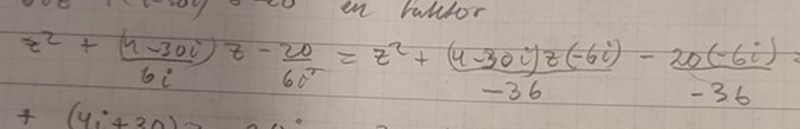 en faktor
z² + (4-30i)z/6i - 20/6i = z² + (4-30i)z(-6i)/-36 - 20(-6i)/-36 =
+ (4i+30)